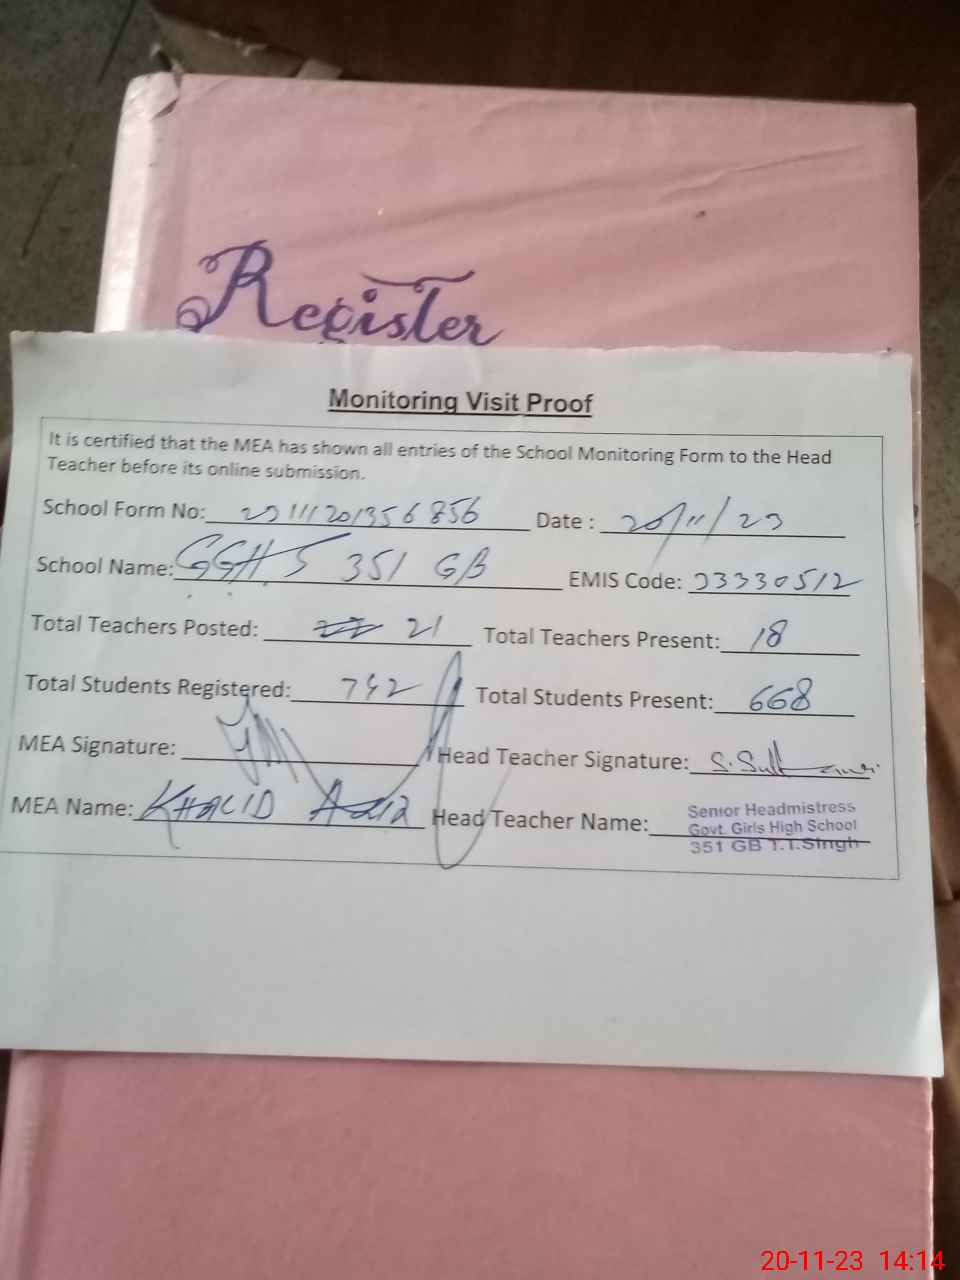 Register
Monitoring Visit Proof
It is certified that the MEA has shown all entries of the School Monitoring Form to the Head
Teacher before its online submission.
School Form No: Date : 20/11/23
School Name: GGHS 351 GB EMIS Code: 33330512
Total Teachers Posted: 21 Total Teachers Present: 18
Total Students Registered: 742 Total Students Present: 668
MEA Signature: Head Teacher Signature:
MEA Name: KHALID Head Teacher Name: Senior Headmistress
Govt. Girls High School
351 GB T.T.Singh
20-11-23 14:14